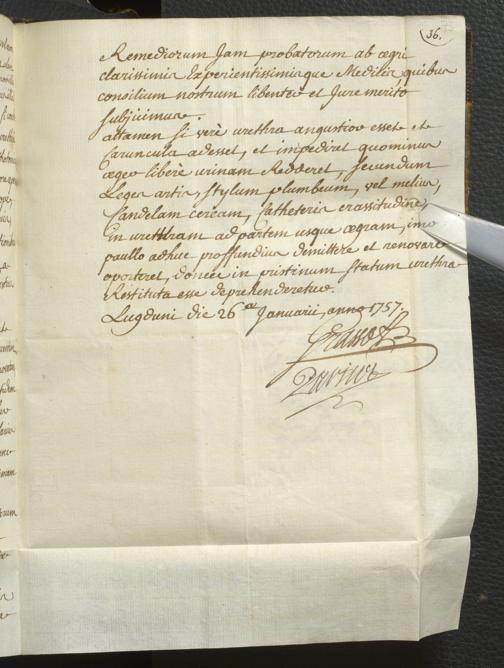 36.
Remediorum Jam probatorum ab ægri
clarissimis Experientissimisque Medicis, quibus
consilium nostrum libenter et Jure merito
subjicimus.
attamen si verè urethra angustior esset et
caruncula adesset, et impediret quominus
æger libere urinam Redderet, secundum
Leges artis, stylum plumbeum, vel melius,
Candelam ceream, Catheteris crassitudine,
in urethram ad partem usque ægram, imo
paullo adhuc proffundius demittere et renovare
oporteret, donec in pristinum statum urethra
Restituta esse deprehenderetur.
Lugduni die 26 Januarii, anno 1757.